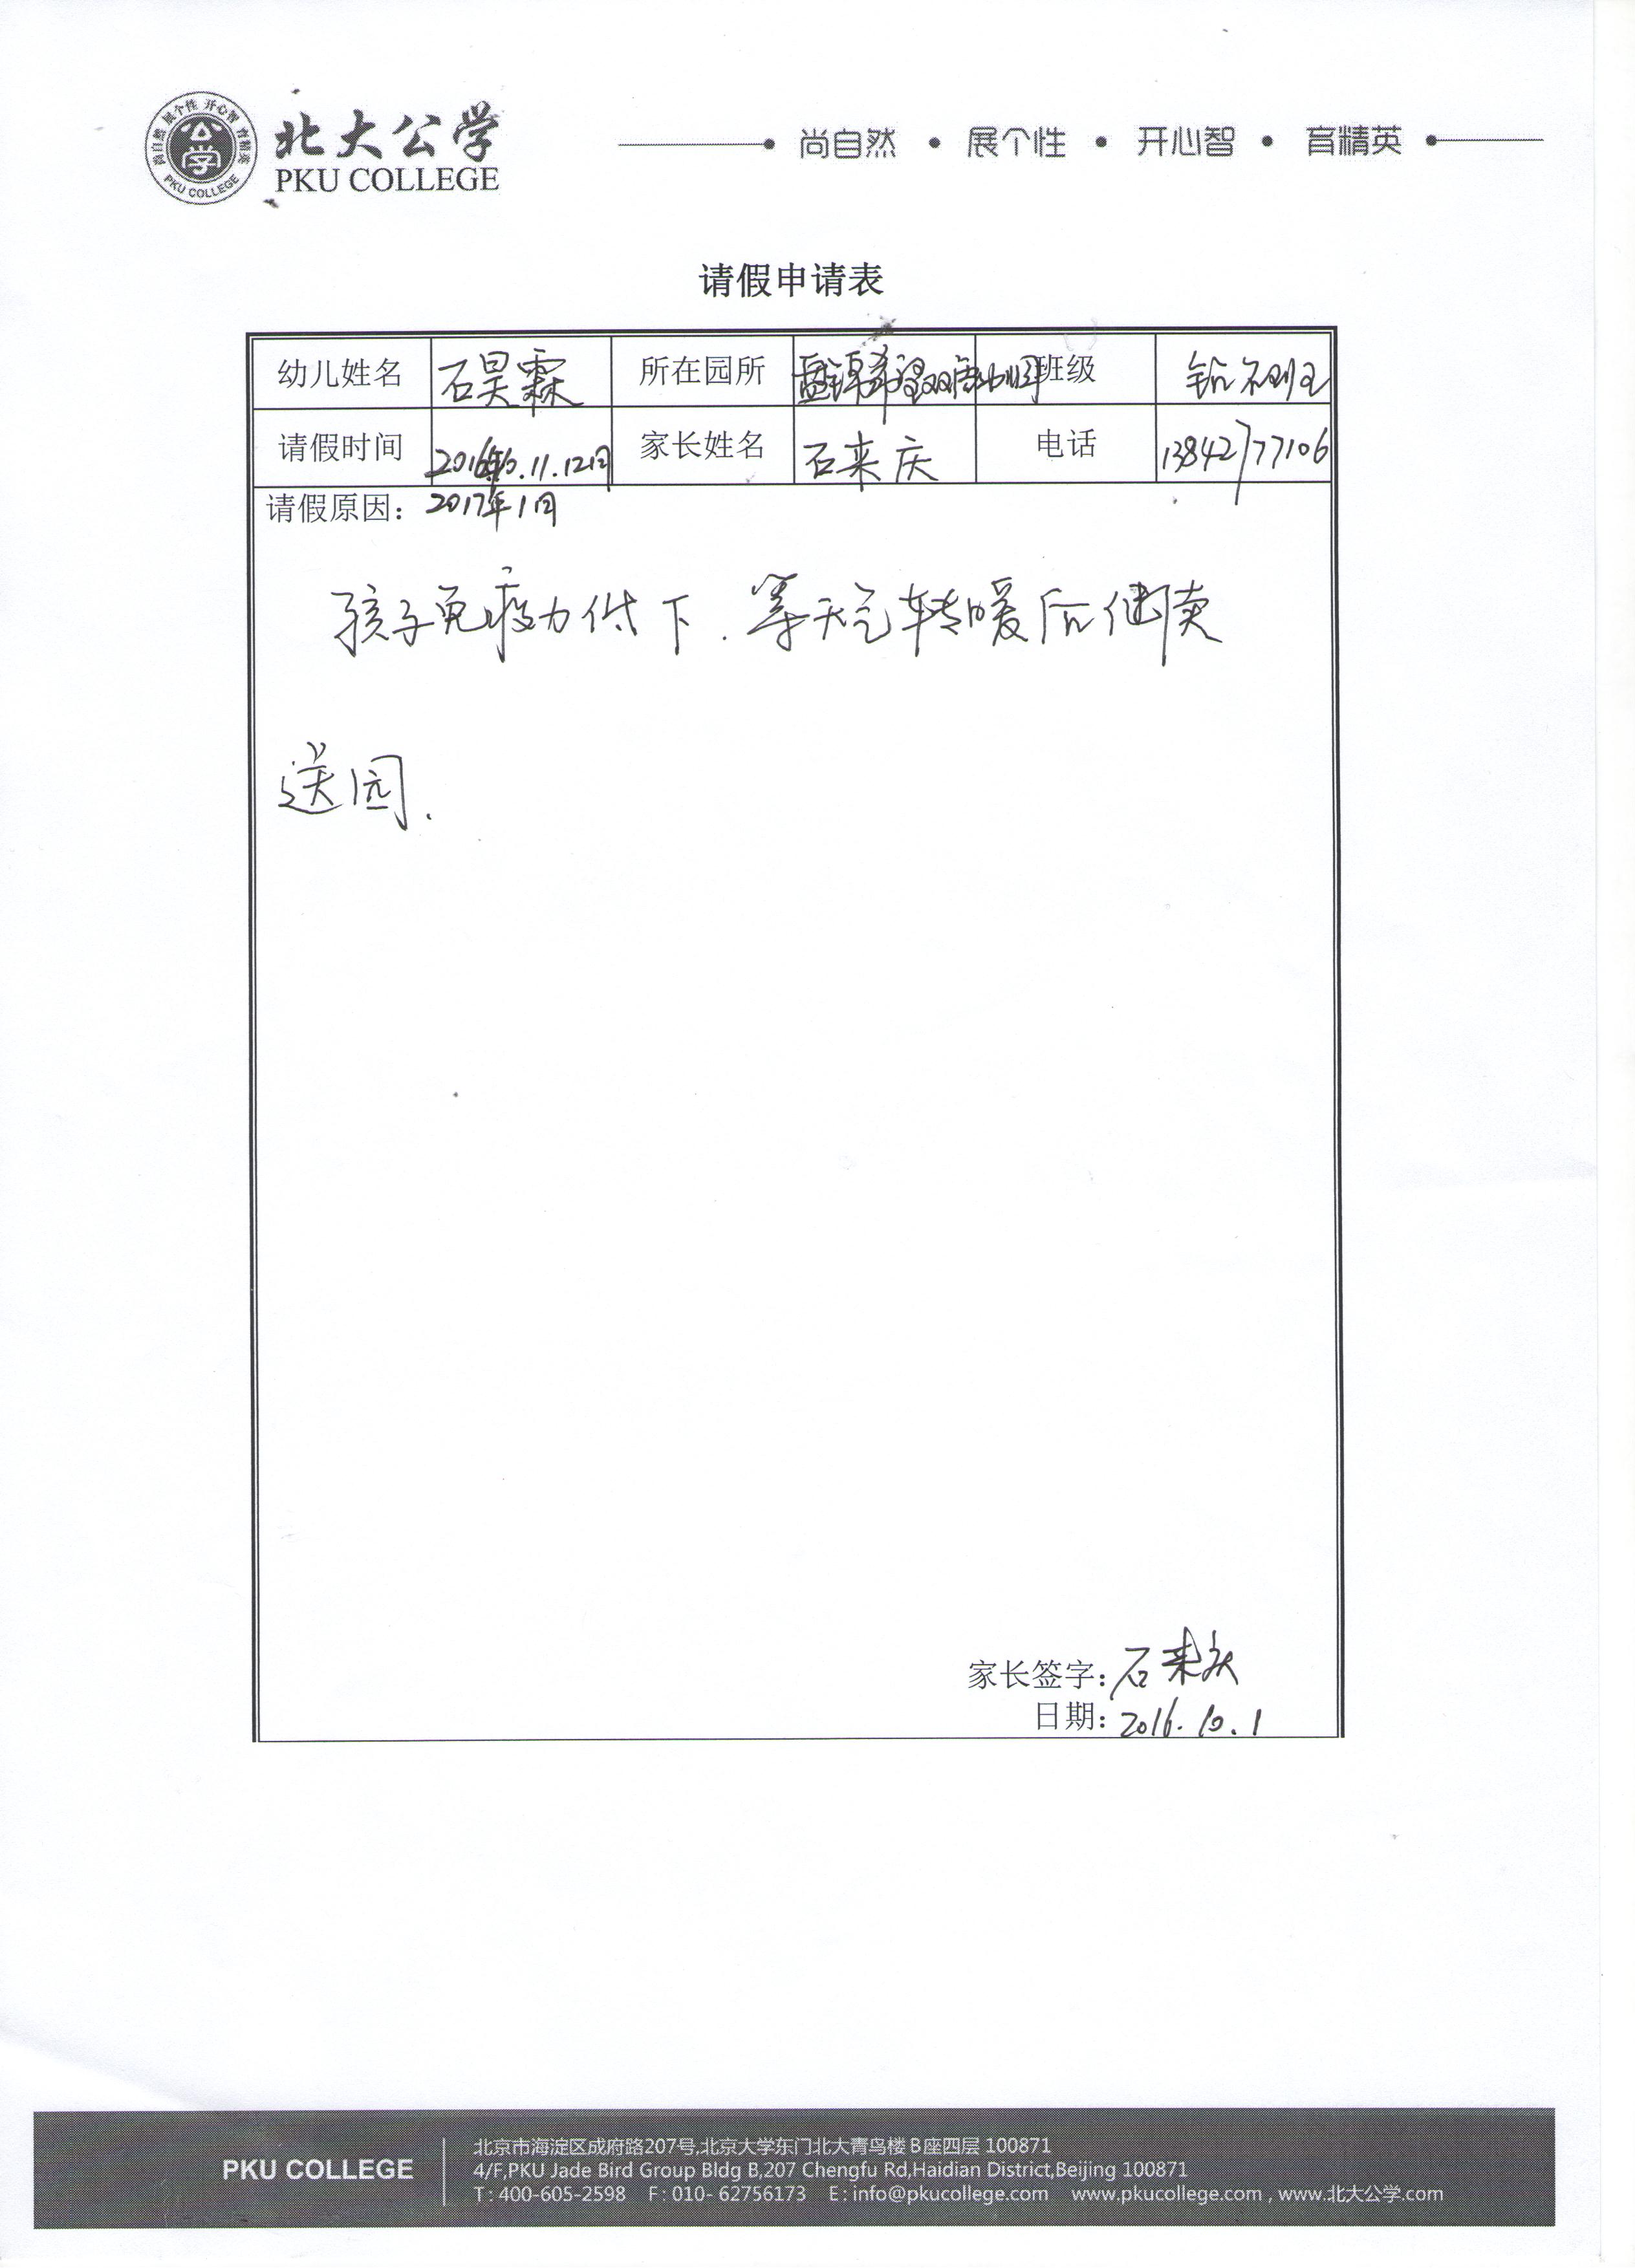 尚自然 展个性 开心智 育精英
公学
PKU COLLEGE
北大公学
PKU COLLEGE
尚自然 • 展个性 • 开心智 • 育精英
请假申请表
幼儿姓名 石昊霖 所在园所 盘锦希望双语幼儿园 班级 钻石班
请假时间 2016年10.11.12月 家长姓名 石来庆 电话 13842777106
请假原因: 2017年1月
孩子免疫力低下.等天气转暖后继续
送园.
家长签字: 石来庆
日期: 2016.10.1
PKU COLLEGE
北京市海淀区成府路207号,北京大学东门北大青鸟楼B座四层 100871
4/F,PKU Jade Bird Group Bldg B,207 Chengfu Rd,Haidian District,Beijing 100871
T:400-605-2598 F:010-62756173 E:info@pkucollege.com www.pkucollege.com , www.北大公学.com